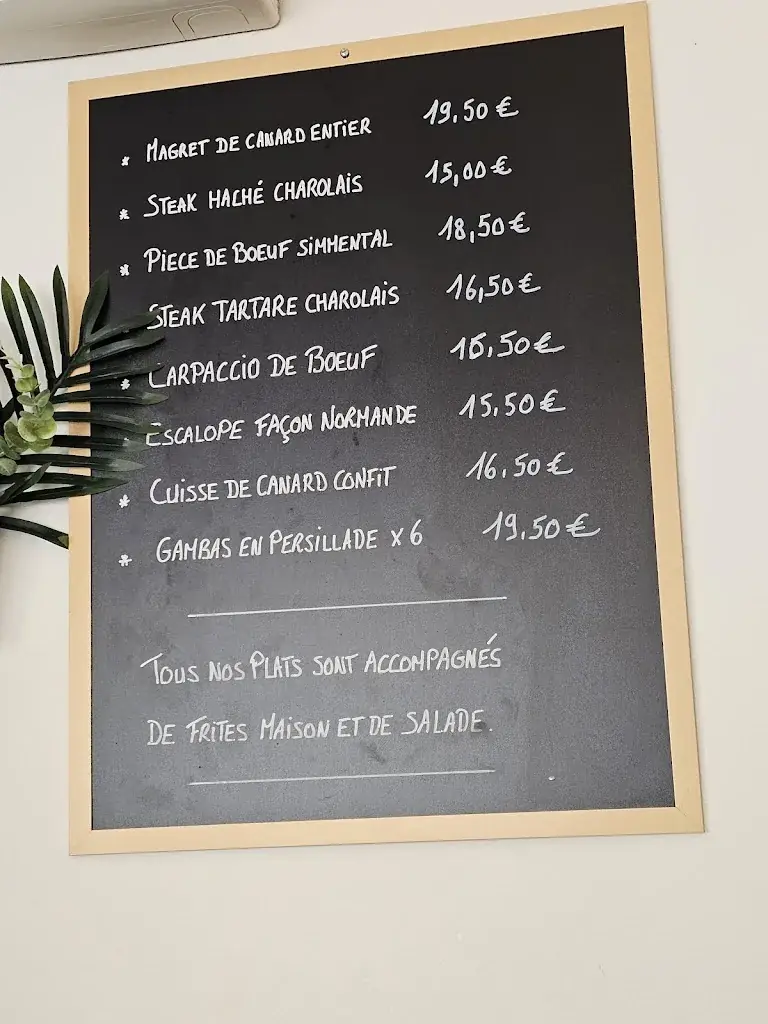 * MAGRET DE CANARD ENTIER 19.50 €
* STEAK HACHÉ CHAROLAIS 15,00 €
* PIECE DE BOEUF SIMMENTAL 18,50 €
STEAK TARTARE CHAROLAIS 16,50 €
* CARPACCIO DE BOEUF
ESCALOPE FAÇON NORMANDE 15.50 €
* CUISSE DE CANARD CONFIT 16.50 €
* GAMBAS EN PERSILLADE x 6 19.50 €
TOUS NOS PLATS SONT ACCOMPAGNÉS
DE FRITES MAISON ET DE SALADE.